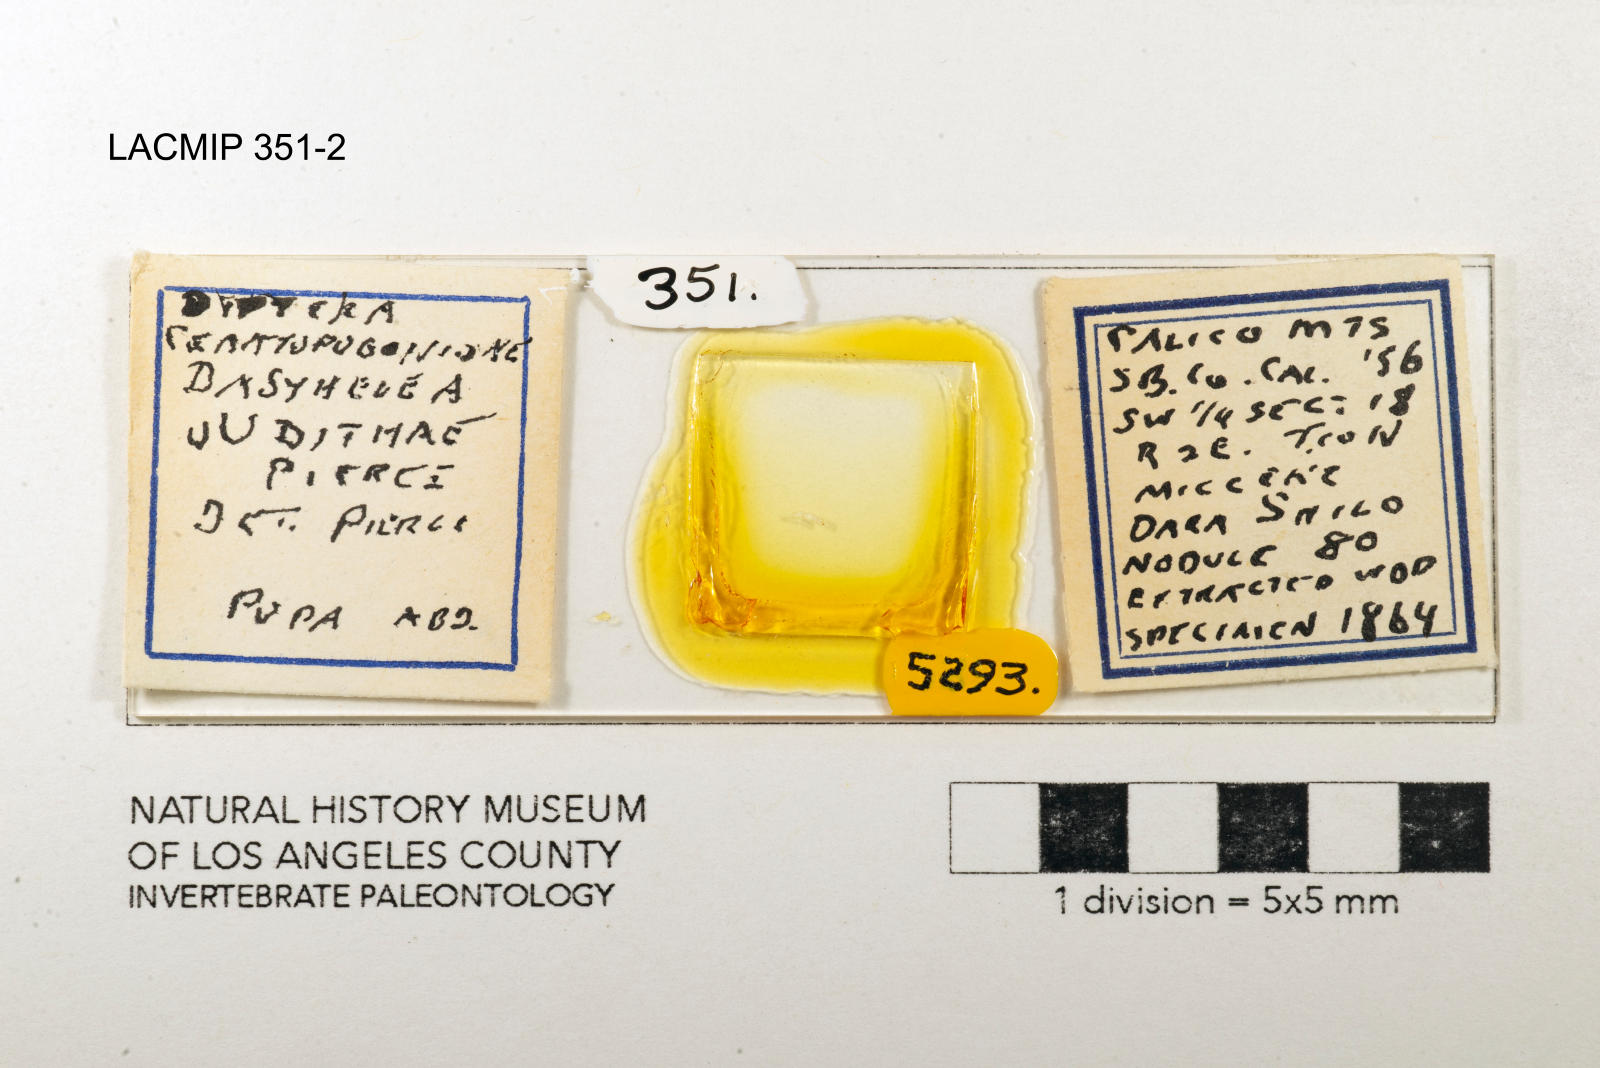 LACMIP 351-2
351.
DIPTERA
CERATOPOGONIDAE
DASYHELEA
JUDITHAE
PIERCE
DET. PIERCE
PUPA ABD.
CALICO MTS
SB. Co. CAL. '56
SW 1/4 SEC. 18
R 2 E. T10N
MIOCENE
DARA SHILO
NODULE 80
EXTRACTED WDP
SPECIMEN 1864
5293.
NATURAL HISTORY MUSEUM
OF LOS ANGELES COUNTY
INVERTEBRATE PALEONTOLOGY
1 division = 5x5 mm